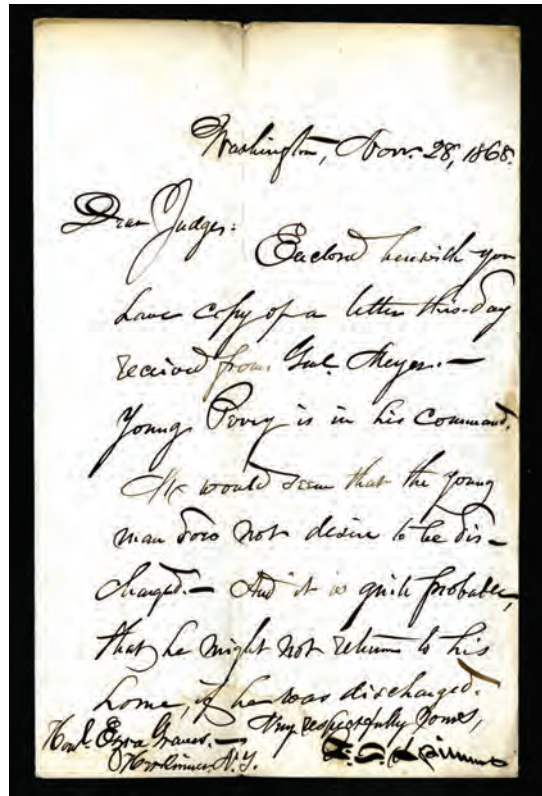 Washington, Novr. 28, 1868.
Dear Judge:
Enclosed herewith you
have copy of a letter this day
received from Genl. Meyer.—
Young Perry is in his Command.
It would seem that the young
man does not desire to be dis-
charged.— And it is quite probable,
that he might not return to his
home, if he was discharged.
Very respectfully Yours,
Honl. Ezra Graves.—
Herkimer, N.Y.